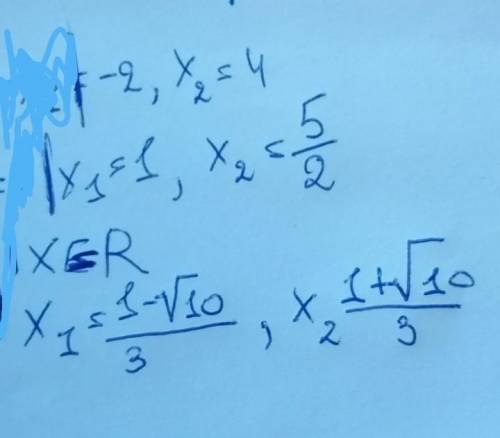 = -2, x₂ = 4
x₁ = 1, x₂ = 5/2
x ∈ R
x₁ = (1-√10)/3, x₂ (1+√10)/3